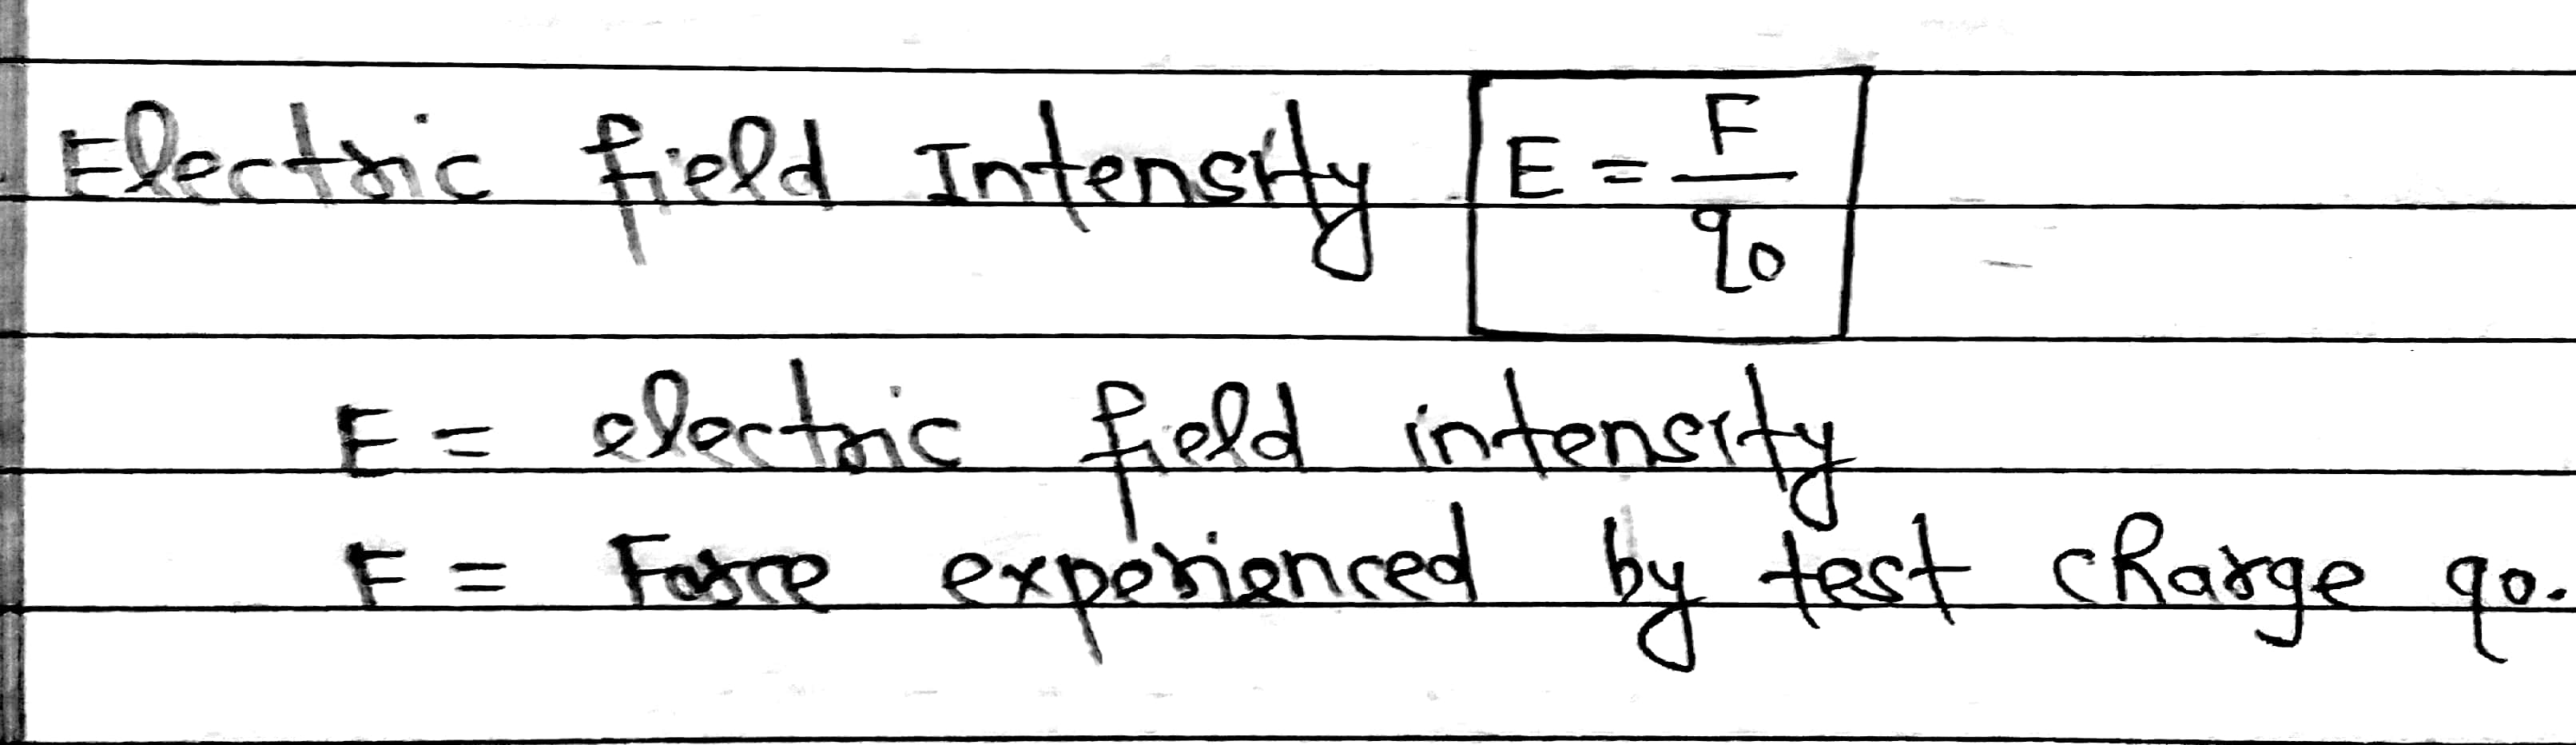 Electric field Intensity E = F/q₀
E = electric field intensity
F = Force experienced by test charge q₀.